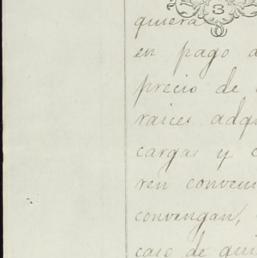 3
quiera
en pago d
precio de
raices adqu
cargas y c
ren conveni
convengan,
caso de qui